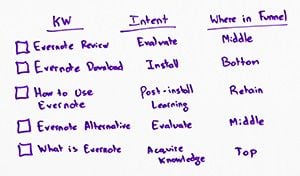 KW Intent Where in Funnel
Evernote Review Evaluate Middle
Evernote Download Install Bottom
How to Use Post-install Retain
Evernote Learning
Evernote Alternative Evaluate Middle
What is Evernote Acquire Top
Knowledge